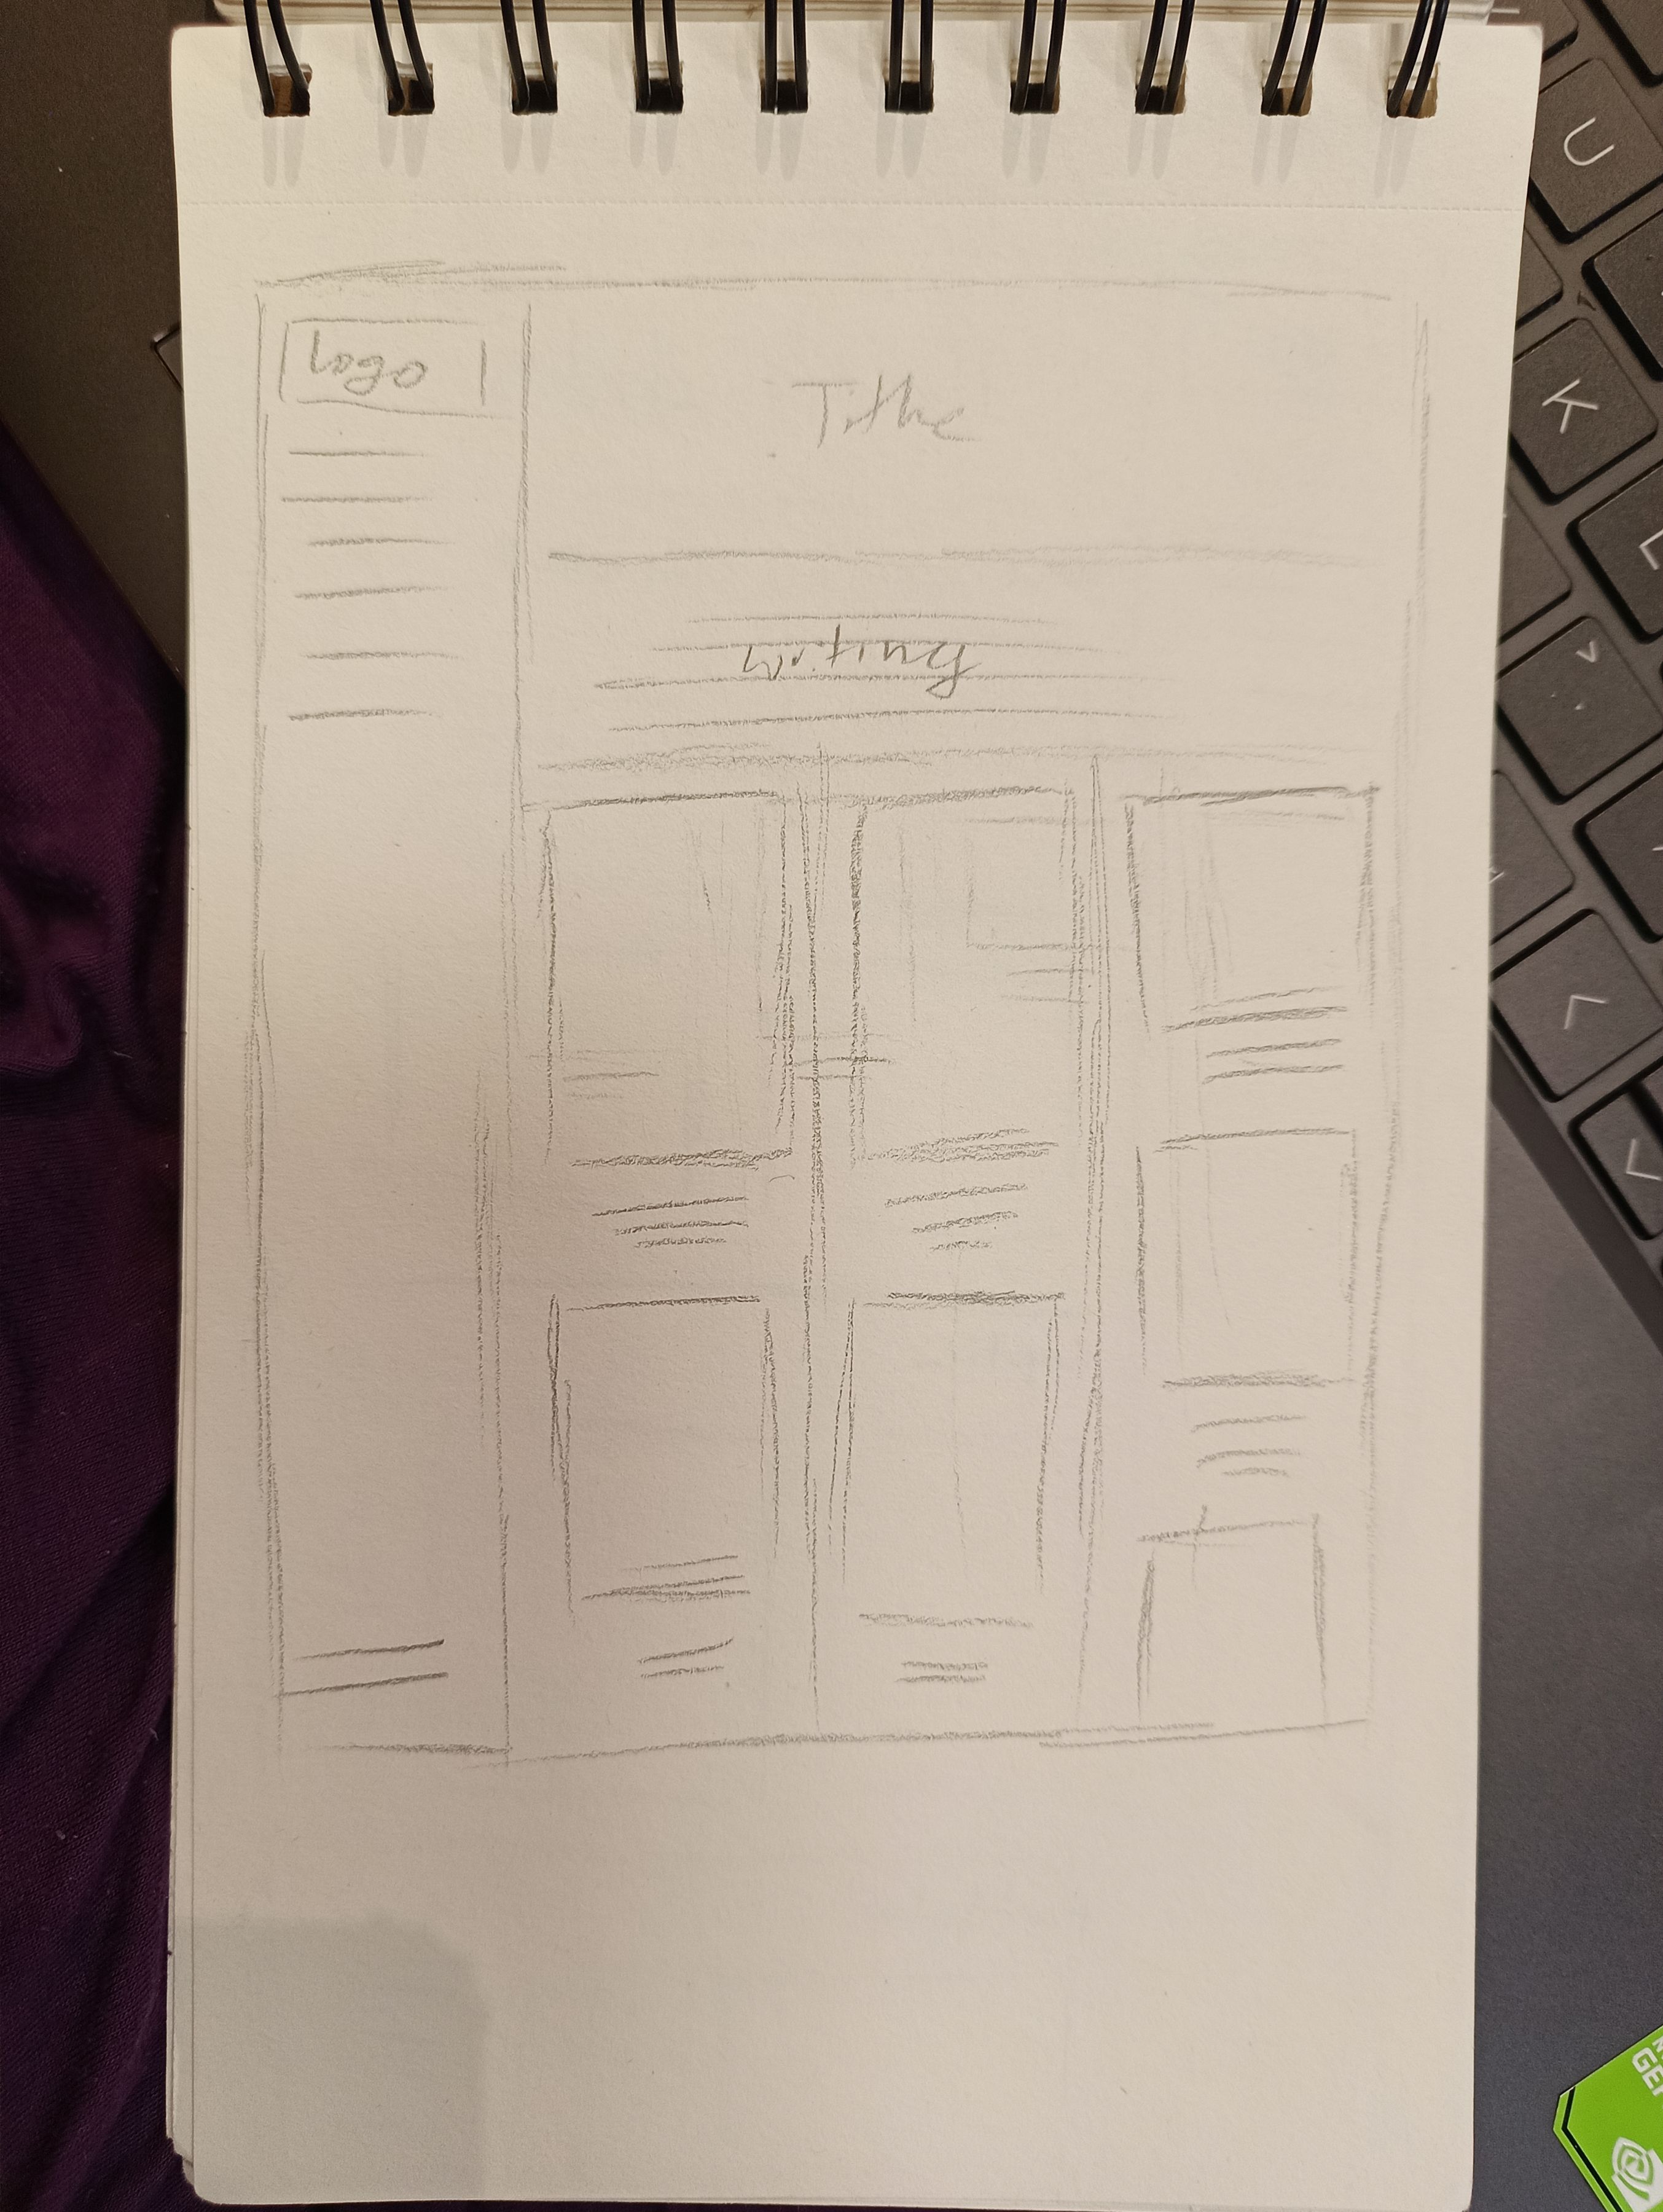 Logo
Title
writing
U
K
L
GE